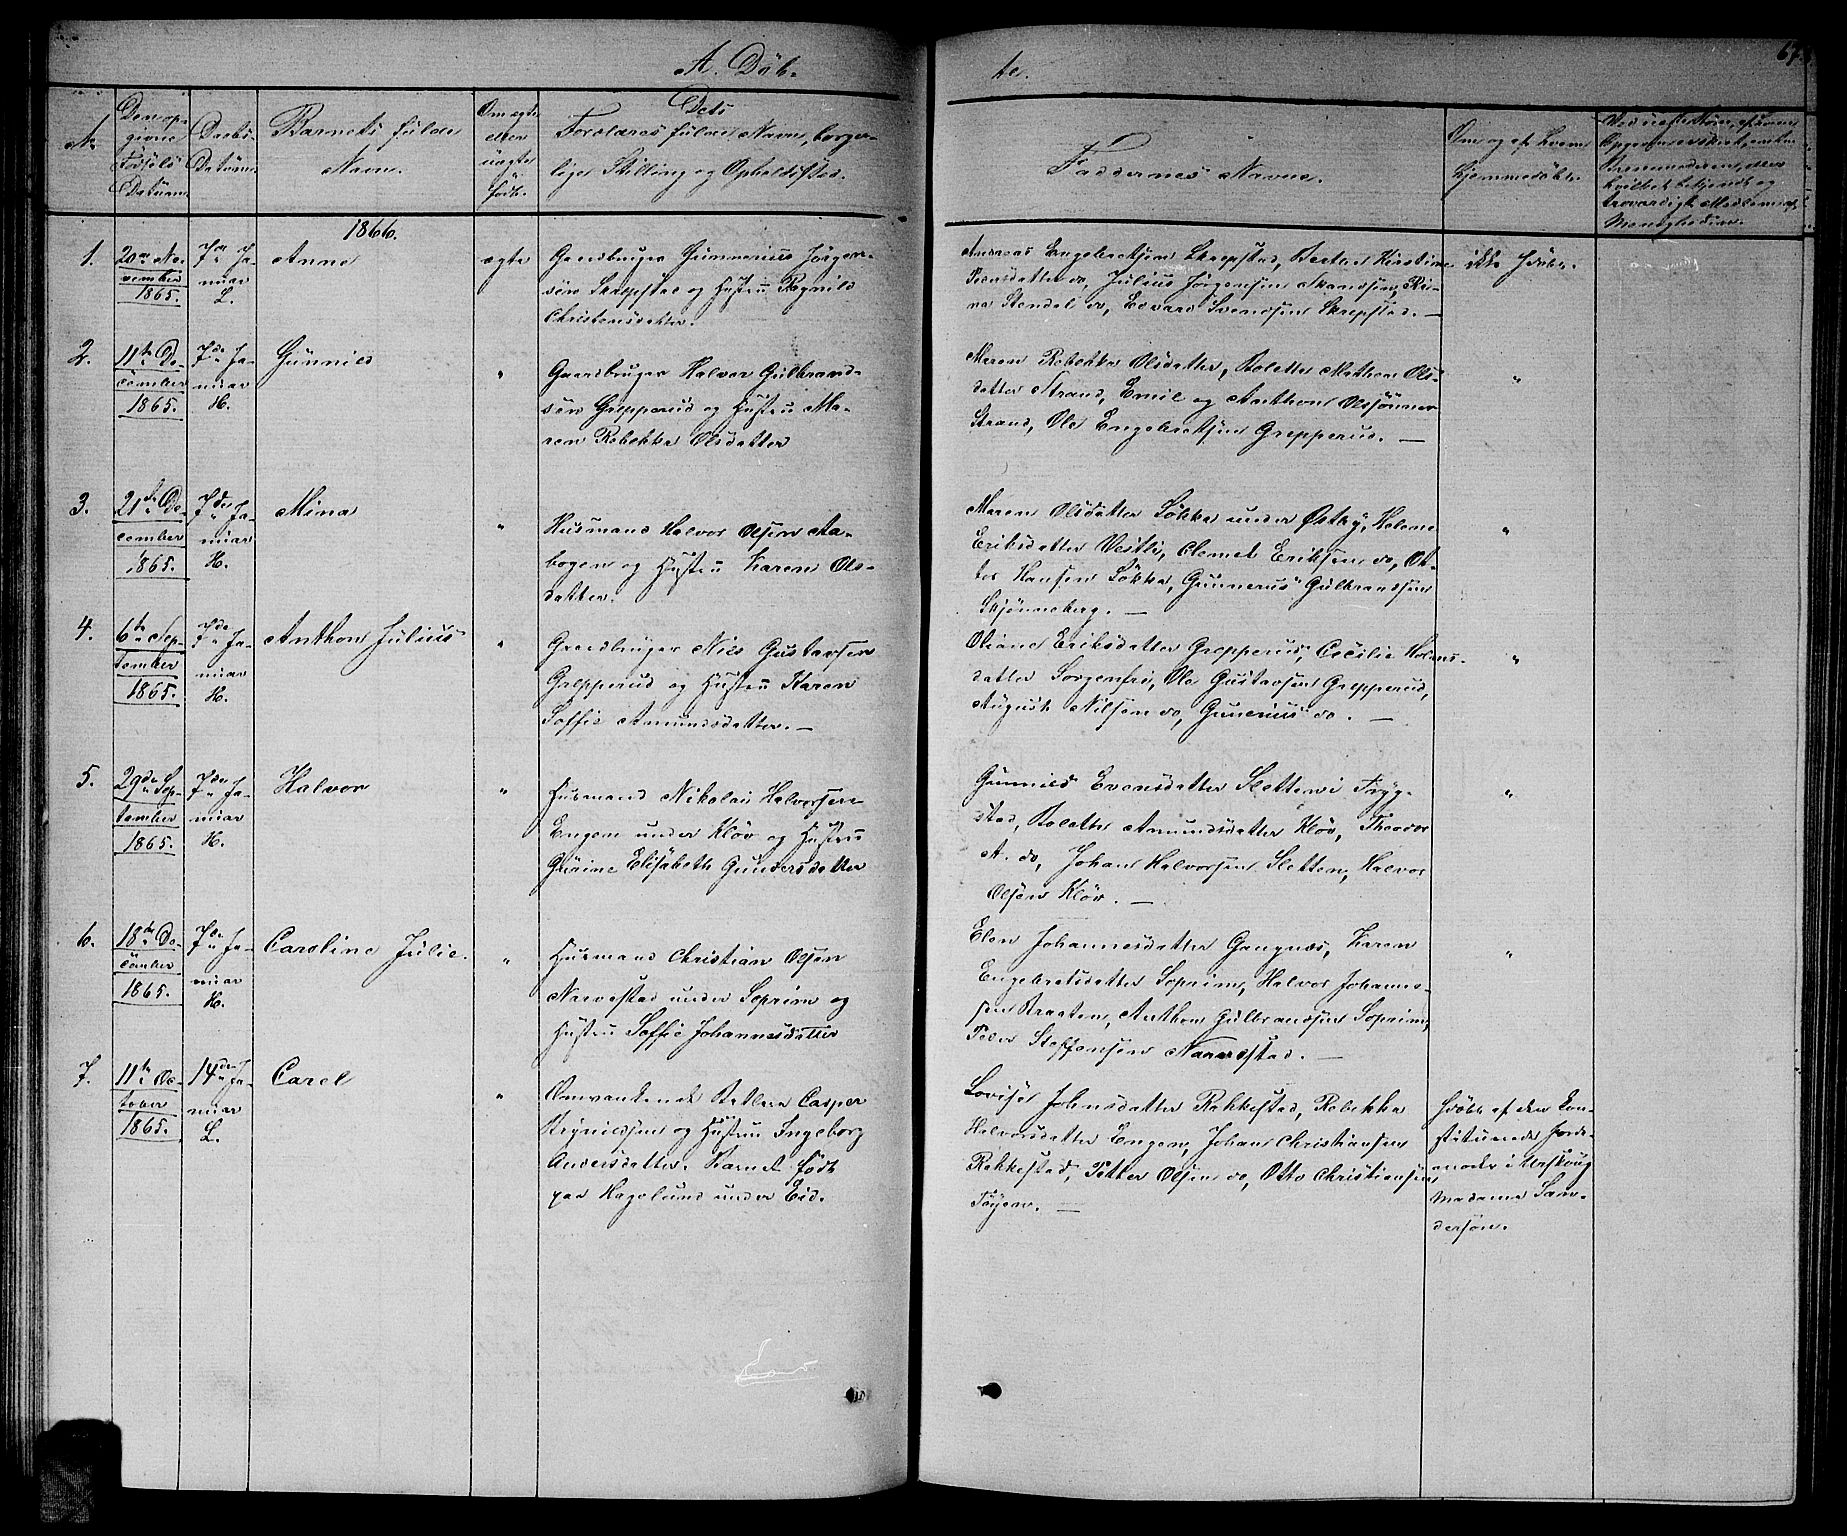 A. Döb-
te.
67.
No
Den op-
givne
Fødsels
Datum
Daabs-
Datum
Barnets fulde
Navn.
Om ægte
eller
uægte
født.
Dets
Forældres fulde Navn, borger-
lige Stilling og Opholdssted.
Faddernes Navne.
Om og af hvem
hjemmedöbt.
1866.
1.
20de No-
vember
1865.
7de Ja-
nuar
L.
Anne
ægte
Gaardbruger Gunnerius Jörgen-
sen Skrepstad og Hustru Ragnild
Christensdatter.
Andreas Engebretsen Skrepstad, Berthe Kirstine
Pedersdatter do, Julius Jörgensen
na Stendal do, Edvard Svendsen Skrepstad. —
ikke hjdöbt.
2.
11te De-
cember
1865.
7de Ja-
nuar
H.
Gunnild
"
Gaardbruger Halvor Gulbrand-
sen Grepperud og Hustru Ma-
ren Rebekka Olsdatter
Maren Rebekka Olsdatter, Bolette Mathea Ols-
datter Strand, Emil og Anthon Olsønner
Strand, Ole Engebretsen Grepperud. —
"
3.
21de De-
cember
1865.
7de Ja-
nuar
H.
Mina
"
Husmand Halvor Olsen Aa-
bogen og Hustru Karen Ols-
datter.
Maren Olsdatter Løkka under Østby, Helene
Eriksdatter Vestli, Clemet Eriksen do, Ot-
ter Hansen Løkka, Gunnerus Gulbrandsen
Skjønneberg. —
"
4.
6te Sep-
tember
1865.
7de Ja-
nuar
H.
Anthon Julius
"
Gaardbruger Nils Gustavsen
Grepperud og Hustru Karen
Soffie Amundsdatter. —
Oliane Eriksdatter Grepperud, Cecilie Halvors-
datter Sorgenfri, Ole Gustavsen Grepperud,
August Nilsen do, Gunerius do. —
"
5.
29de Sep-
tember
1865.
7de Ja-
nuar
H.
Halvor
"
Husmand Nikolai Halvorsen
Engen under Kløv og Hustru
Gurine Elisabeth Gundersdatter
Gunnild Evensdatter Sletten i Tryg-
stad, Bolette Amundsdatter Kløv, Theodor
A. do, Johan Halvorsen Sletten, Halvor
Olsen Kløv. —
"
6.
18de De-
cember
1865.
7de Ja-
nuar
H.
Caroline Julie.
"
Husmand Christian Olsen
Narvestad under Soprim og
Hustru Soffie Johannesdatter
Elen Johannesdatter Gangnæs, Karen
Engebretsdatter Soprim, Halvor Johannes-
sen Braaten, Anthon Gulbrandsen Soprim,
Peder Steffensen Narvestad. —
"
7.
11te Oc-
tober
1865.
14de Ja-
nuar
L.
Carel
"
Omvankende Betlere Casper
Brynildsen og Hustru Ingeborg
Andersdatter. Barnet født
paa Haglund under Eid.
Lovise Johnsdatter Rakkestad, Rebekka
Halvorsdatter Engen, Johan Christiansen
Rakkestad, Petter Olsen do, Otto Christiansen
Tøyen. —
hjdöbt af den Con-
stituerede Jorde-
moder i Urskoug
Madame San-
dersøn.